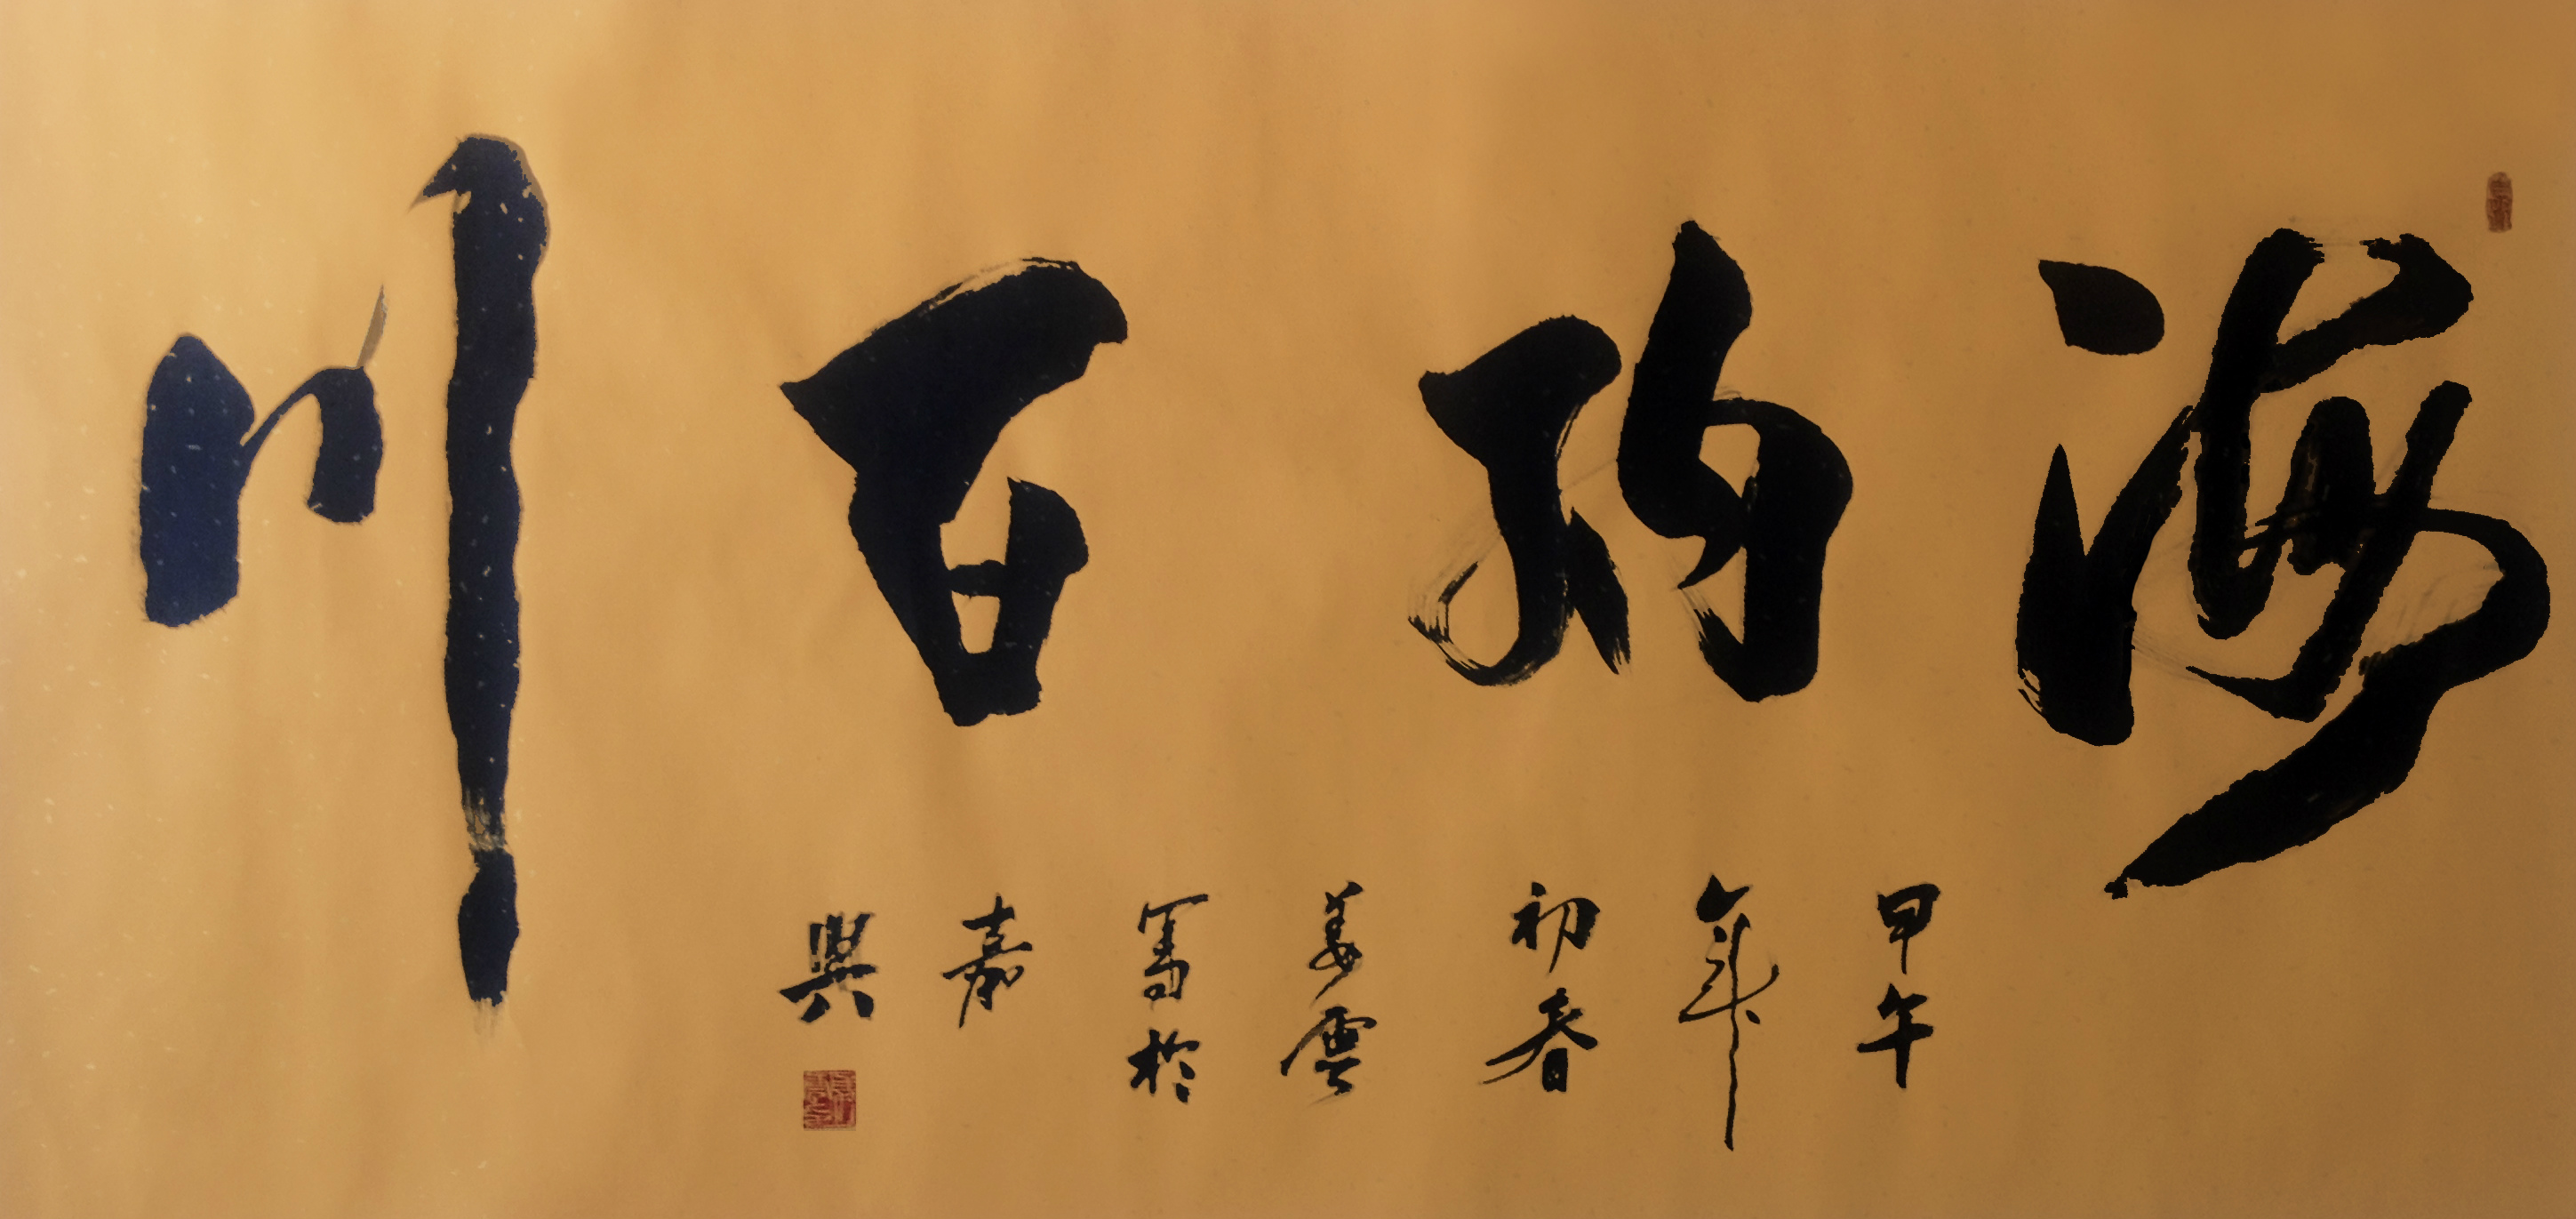 海納百川
甲午
年
初春
姜雲
寫於
嘉
興